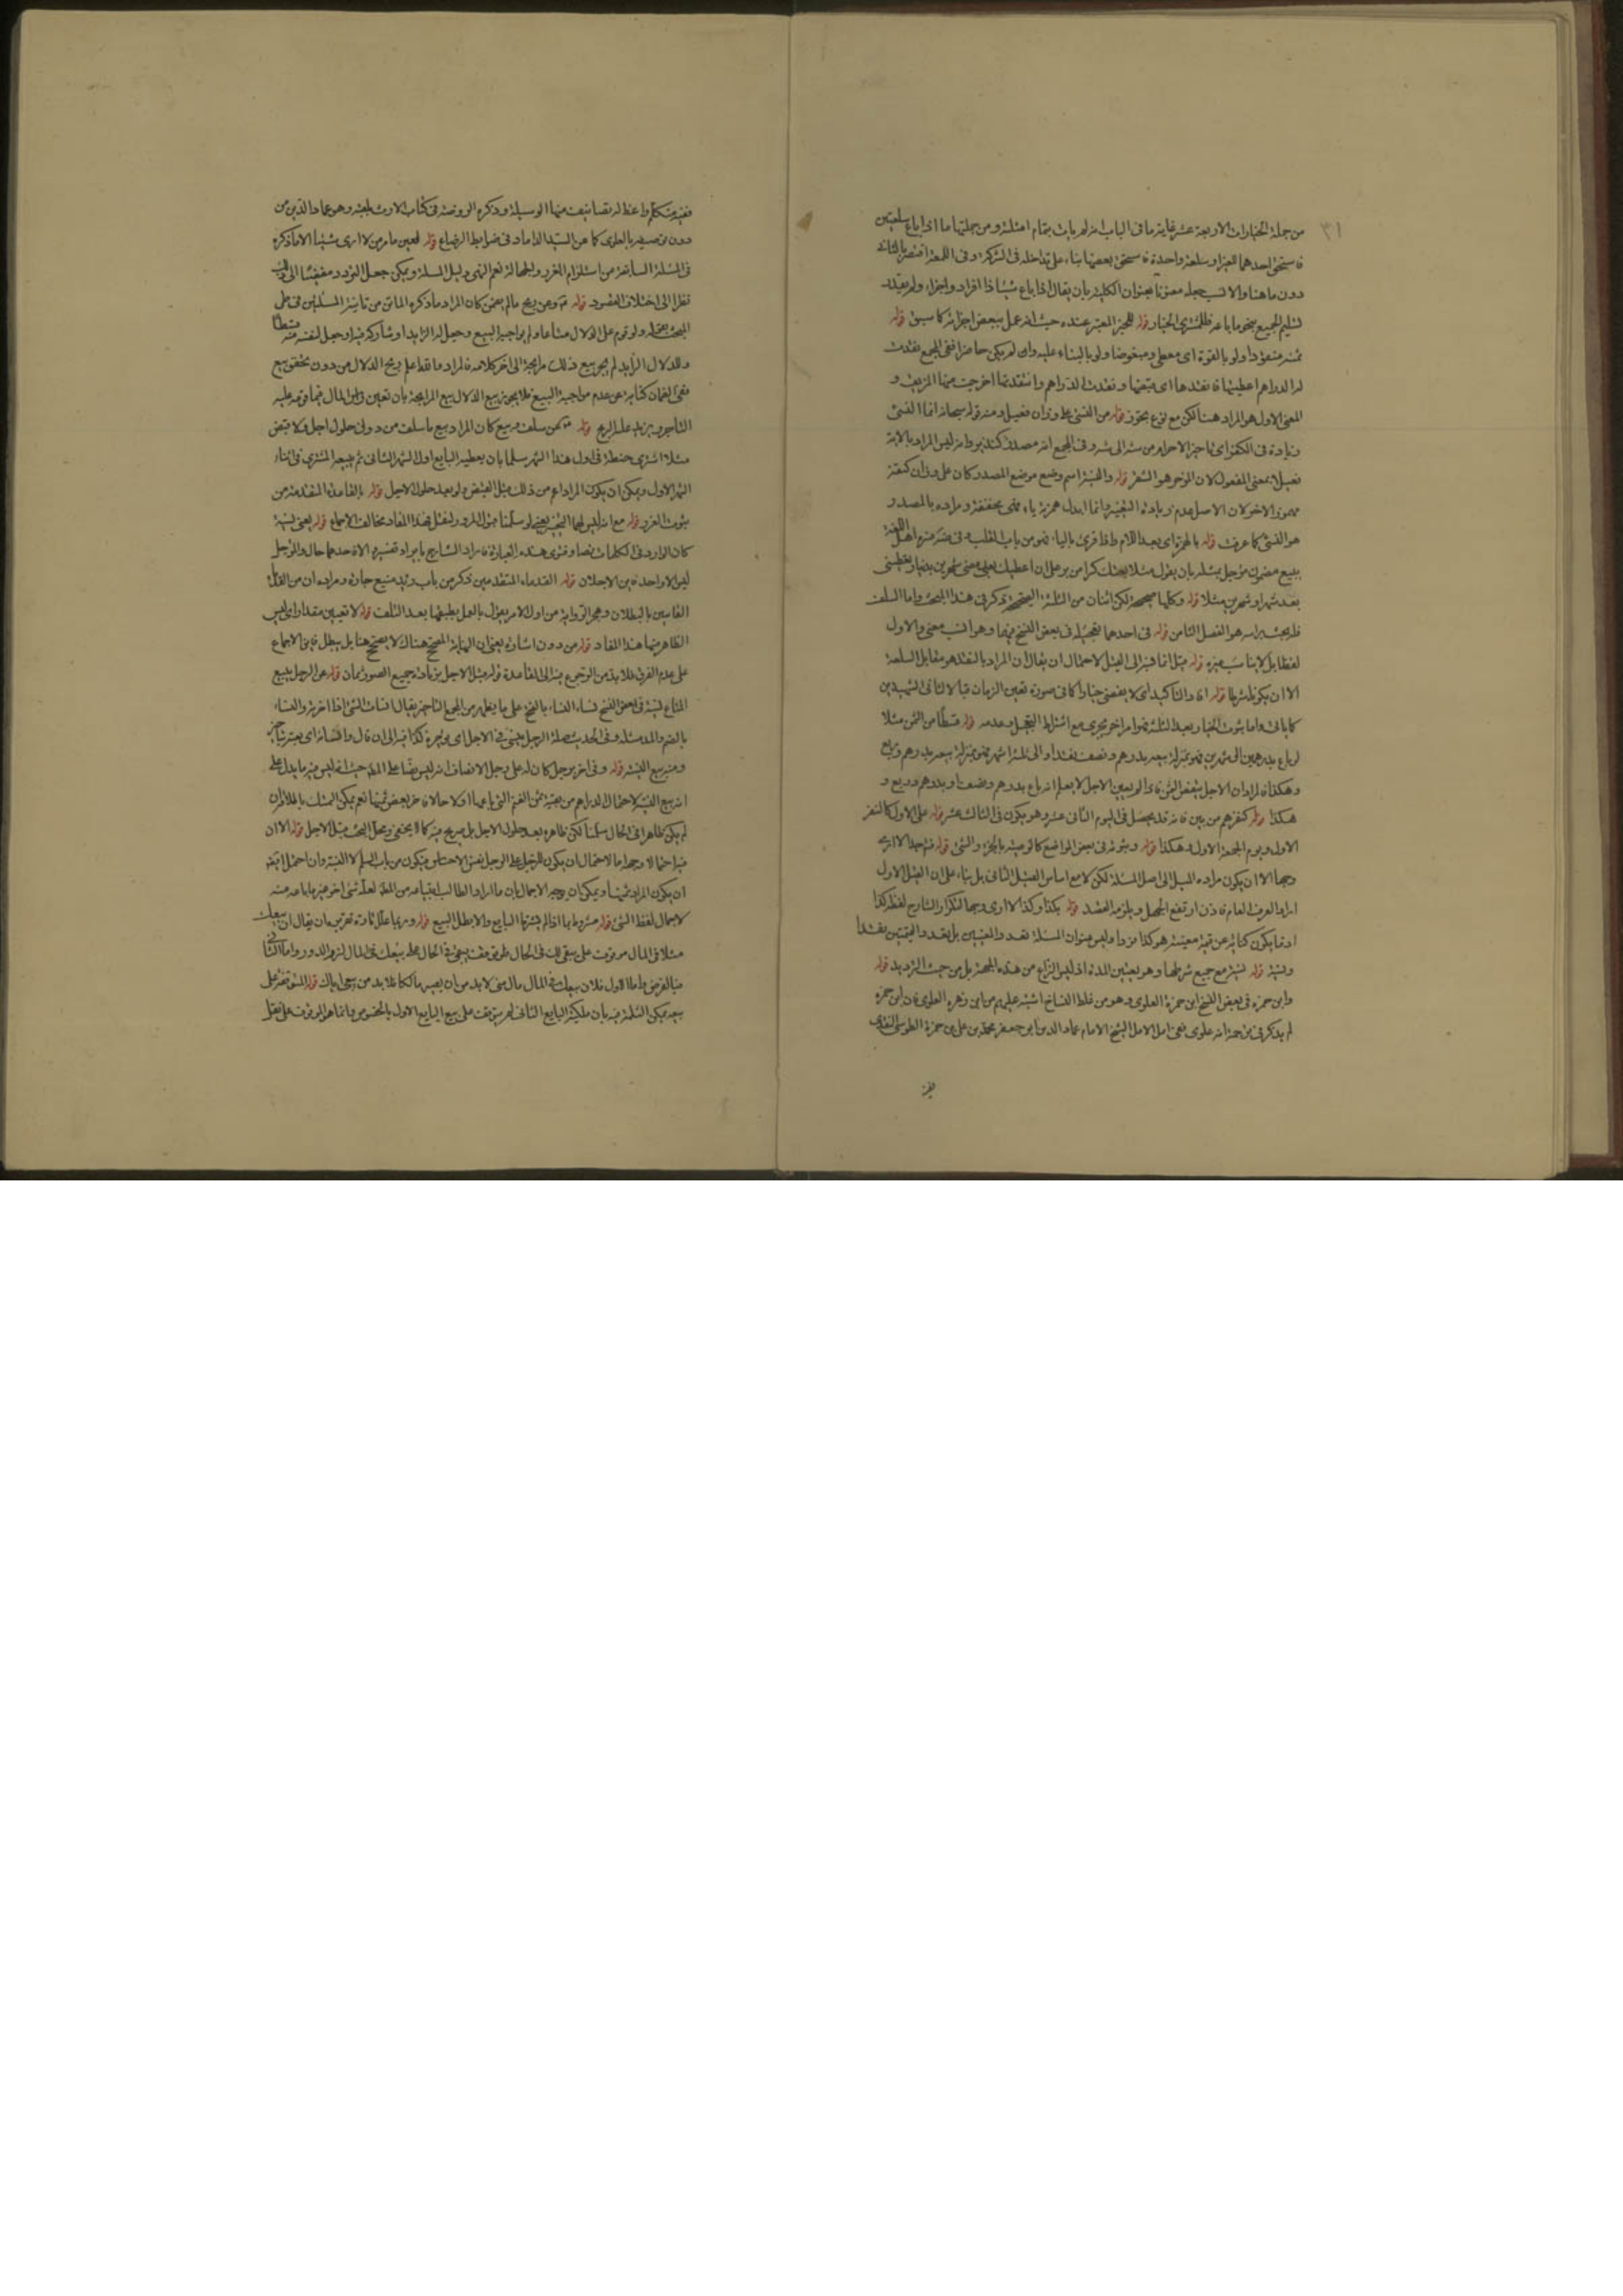 ٣١
من جملة الخيارات الاربعة عشر غاية ما فى الباب انه لم يات بتمام امثلته ومن جملتها ما اذا باع سلعتين
فاستحق احدهما الغير او سلعة واحدة فاستحق بعضها بناء على تداخله فى الشركة وفى اللمعة اقتصر بالثانى
دون ما هنا والانسب جعله معنونا بعنوان الكلية بان يقال اذا باع شيئا ذا افراد واجزاء ولم يقدر
لتسليم الجميع بنحو ما باعه فللمشترى الخيار قوله للحيز المعتبر عنده حيث انه عمل ببعض اجزائه كما سبق قوله
ثمنه منقودا ولو بالقوة اى معطى ومقبوضا ولو بالبناء عليه وان لم يكن حاضرا ففى المجمع نقدت
له الدراهم اعطيتها فانتقدها اى قبضها ونقدت الدراهم وانتقدتها اخرجت منها الزيف و
المعنى الاول هو المراد هنا لكن مع نوع تجوز قوله من النسئ على وزن فعيل ومنه قوله سبحانه انما النسئ
زيادة فى الكفر اى تاخير الاحرام من شهر الى شهر وفى المجمع انه مصدر كنذير وانه ليس المراد بالاية
فعيل بمعنى المفعول لان المؤخر هو الشهر قوله والنسية اسم وضع موضع المصدر كان على وزان كنقية
مهموز الاخر لان الاصل عدم زيادة التغيير وانما ابدل همزته ياء فهى مخففة ومراده بالمصدر
هو النسئ كما عرفت قوله بالهمزة اى بعد اللام واذا قرئ بالياء فهو من باب القلب وفى عدة منهم اهل اللغة
ببيع مضمون مؤجل بمثله بان يقول مثلا بعتك كرا من بر على ان اعطيك بعد مضى شهرين بدينار تعطينى
بعد شهر او شهرين مثلا قوله وكلها صحيحة لكن اثنان من الثلثة الصحيحة ذكر فى هذا المبحث واما السلف
فله مبحث براسه هو الفصل الثامن قوله فى احدهما بتعجيله فى بعض النسخ فيهما وهو انسب معنى والاول
لفظا بل لا يناسب غيره قوله قيل انما نسبه الى القيل لاحتمال ان يقال ان المراد بالنقد هو مقابل السلعة
الا ان يكون شرطا قوله افاد التاكيد اى لا يقتضى خيارا كما فى صورة تعيين الزمان قبالا لثانى الشهيدين
كما ياتى واما ثبوت الخيار بعد الثلثة فهو امر اخر يجرى مع اشتراط التعجيل وعدمه قوله قسطا من الثمن مثلا
لو باع بدرهمين الى شهرين فهو بمنزلة بيعه بدرهم ونصف نقدا والى ثلثة اشهر فهو بمنزلة بيعه بدرهم وربع
وهكذا فالمراد ان الاجل ينقص الثمن فاذا لم يعين الاجل لا يعلم انه باع بدرهم ونصف او بدرهم وربع و
هكذا قوله كنفرهم من بين فانه قد يحصل فى اليوم الثانى عشر وهو يكون فى الثالث عشر قوله على الاول كالنفر
الاول ويوم الجمعة الاول وهكذا قوله وبثبوته فى بعض المواضع كالوصية بالجزء والشئ قوله فيه جدا لا ارى
وجها الا ان يكون مراده الميل الى اصل المسئلة لكن لا مع اساس القيل الثانى بل بناء على ان القيل الاول
امر اد العرف العام فاذن ارتفع الجهل ويلزمه العقد قوله بكذا وكذا لا ارى وجها لتكرار الشارح لفظ كذا
اذ انما يكون كناية عن قيمة معينة هو كذا فرد ما وليس عنوان المسئلة تعدد المعينين بل تعدد القيمتين نقدا
ونسية قوله نسية مع جميع شرطها وهو تعيين المدة اذ ليس النزاع من هذه الجهة بل من حيث الترديد قوله
وابن حمزة فى بعض النسخ ابن حمزة العلوى وهو من غلط النساخ اشتبه عليهم من ابن زهرة العلوى فان ابن حمزة
لم يذكر فى ترجمته انه علوى ففى امل الامل الشيخ الامام عماد الدين ابو جعفر محمد بن على بن حمزة الطوسى المشهدى
فقيه
فقيه متكلم واعظ له تصانيف منها الوسيلة وذكره الروضة فى كتاب الارث بلقبه وهو عماد الدين من
دون توصيفه بالعلوى كما عن السيد الداماد فى ضوابط الرضاع قوله لعين ما مر من لا ارى شيئا الا ما ذكره
فى المسئلة السابقة من استلزام الغرر والجهالة نعم النهى دليل المسئلة ويمكن جعل التردد مقتضيا الى ذلك
نظرا الى اختلاف القصود قوله ومن ربح ما لم يضمن كان المراد ما ذكره الماتن من تاسية المسئلتين فى مثل
المبحث بقوله ولو قوم على الدلال متاعا ولم يواجبه البيع وجعل له الزايد او شاركه فيه او جعل لنفسه منه قسطا
وللدلال الزايد لم يجز بيع ذلك مرابحة الى اخر كلامه فالمراد والله اعلم ربح الدلال من دون تحقق بيع
فنفى الضمان كناية عن عدم مواجبة البيع فلا يجوز بيع الدلال بيع المرابحة بان تعين دابن المال فيما قومه عليه
التاجر ويزيد عليه الربح قوله عن سلف وبيع كان المراد بيع ما سلف من دون حلول اجله ولا قبض
مثلا اشترى حنطة فى اول هذا الشهر سلما بان يعطيه البايع اول الشهر الثانى ثم يبيعه المشترى فى اثناء
الشهر الاول ويمكن ان يكون المراد اعم من ذلك مثل القبض ولو بعد حلول الاجل قوله بالقاعدة المتقدمة من
ثبوت الغرر قوله مع انه ليس لهما التخيير يعنى لو سلمنا ثبوت المرور لنقل فهذا المفاد مخالف الاجماع قوله يعنى نسية
كان الوارد فى الكلمات نصا وفتوى هذه العبارة فاراد الشارح بايراد تفسيره الا فاحدهما حال والمؤجل
ليس الا واحدا فاين الاجلان قوله القدماء المتقدمين ذكر من باب وتيه منيع جاره ومراده ان من القائل
القاسين بالبطلان وهجر الرواية من اول الامر يقول بالعمل بطبقها بعد التلف قوله لا تعيين مقدارا ى ليس
الظاهر منها هذا المفاد قوله من دون اشارة يعنى ان الهبة المصحح هناك لا يصحح هنا بل يبطل فاين الاجماع
على عدم الفرق فلا بد من الرجوع فيه الى القاعدة قوله قبل الاجل بزيادة جميع الصور ثمان قوله عن الرجل يبيع
المتاع نسية فى بعض النسخ نساء النساء بالفتح على ما يظهر من المجمع التاخير يقال انسات الشئ اذا اخرته والنساء
بالضم والمد مثله وفى الحديث صلة الرحم ينسئ فى الاجل اى يؤخره كذا فيه الى ان قال وانساته اى بعته بتاخير
ومنه بيع النسية قوله وفى اخر رجل كان له على رجل الانصاف انه ليس نصا على المط حيث انه ليس فيه ما يدل على
انه بيع النسية لاحتمال الدراهم من بقية ثمن الغنم التى باعها اولا حالا فاخر بعض ثمنها نعم يمكن التمسك باطلاق ان
لم يكن ظاهرا فى الحال سلمنا لكن ظاهره بعد حلول الاجل بل صريح فيه كما لا يخفى ومحل البحث قبل الاجل قوله الا ان
فيه احتمالا وجها ما لاحتمال ان يكون للرجل على الرجل نفس الاجناس فيكون من باب السلم لا النسية وان احتمل ايضا
ان يكون المراد ثمنها ويمكن ان يوجه الاجمال بان ما اراد الطالب ابتياعه من الغلة لعله شئ اخر غير ما باعه منه
لاجمال لفظ الشئ قوله مشروطا بما اذا لم يشترطا البايع والا بطل البيع قوله وربما علل تارة تقريبه ان يقال ان بيعك
مثلا فى المال موقوف على سبقى لك فى الحال طوق توقف بيعى فى الحال على بيعك فى المال لزم الدور واما الثانى
فبالفرض واما الاول فلان بيعك فى المال مال منى لا بد من ان يصير مالكا فلا بد من بيعى اياك قوله المتوقف على
بيعه يمكن الثلثة فيه بان ملكية البايع الثانى لم يتوقف على بيع البايع الاول بالخصوص وانما هو الموقوف على نقل